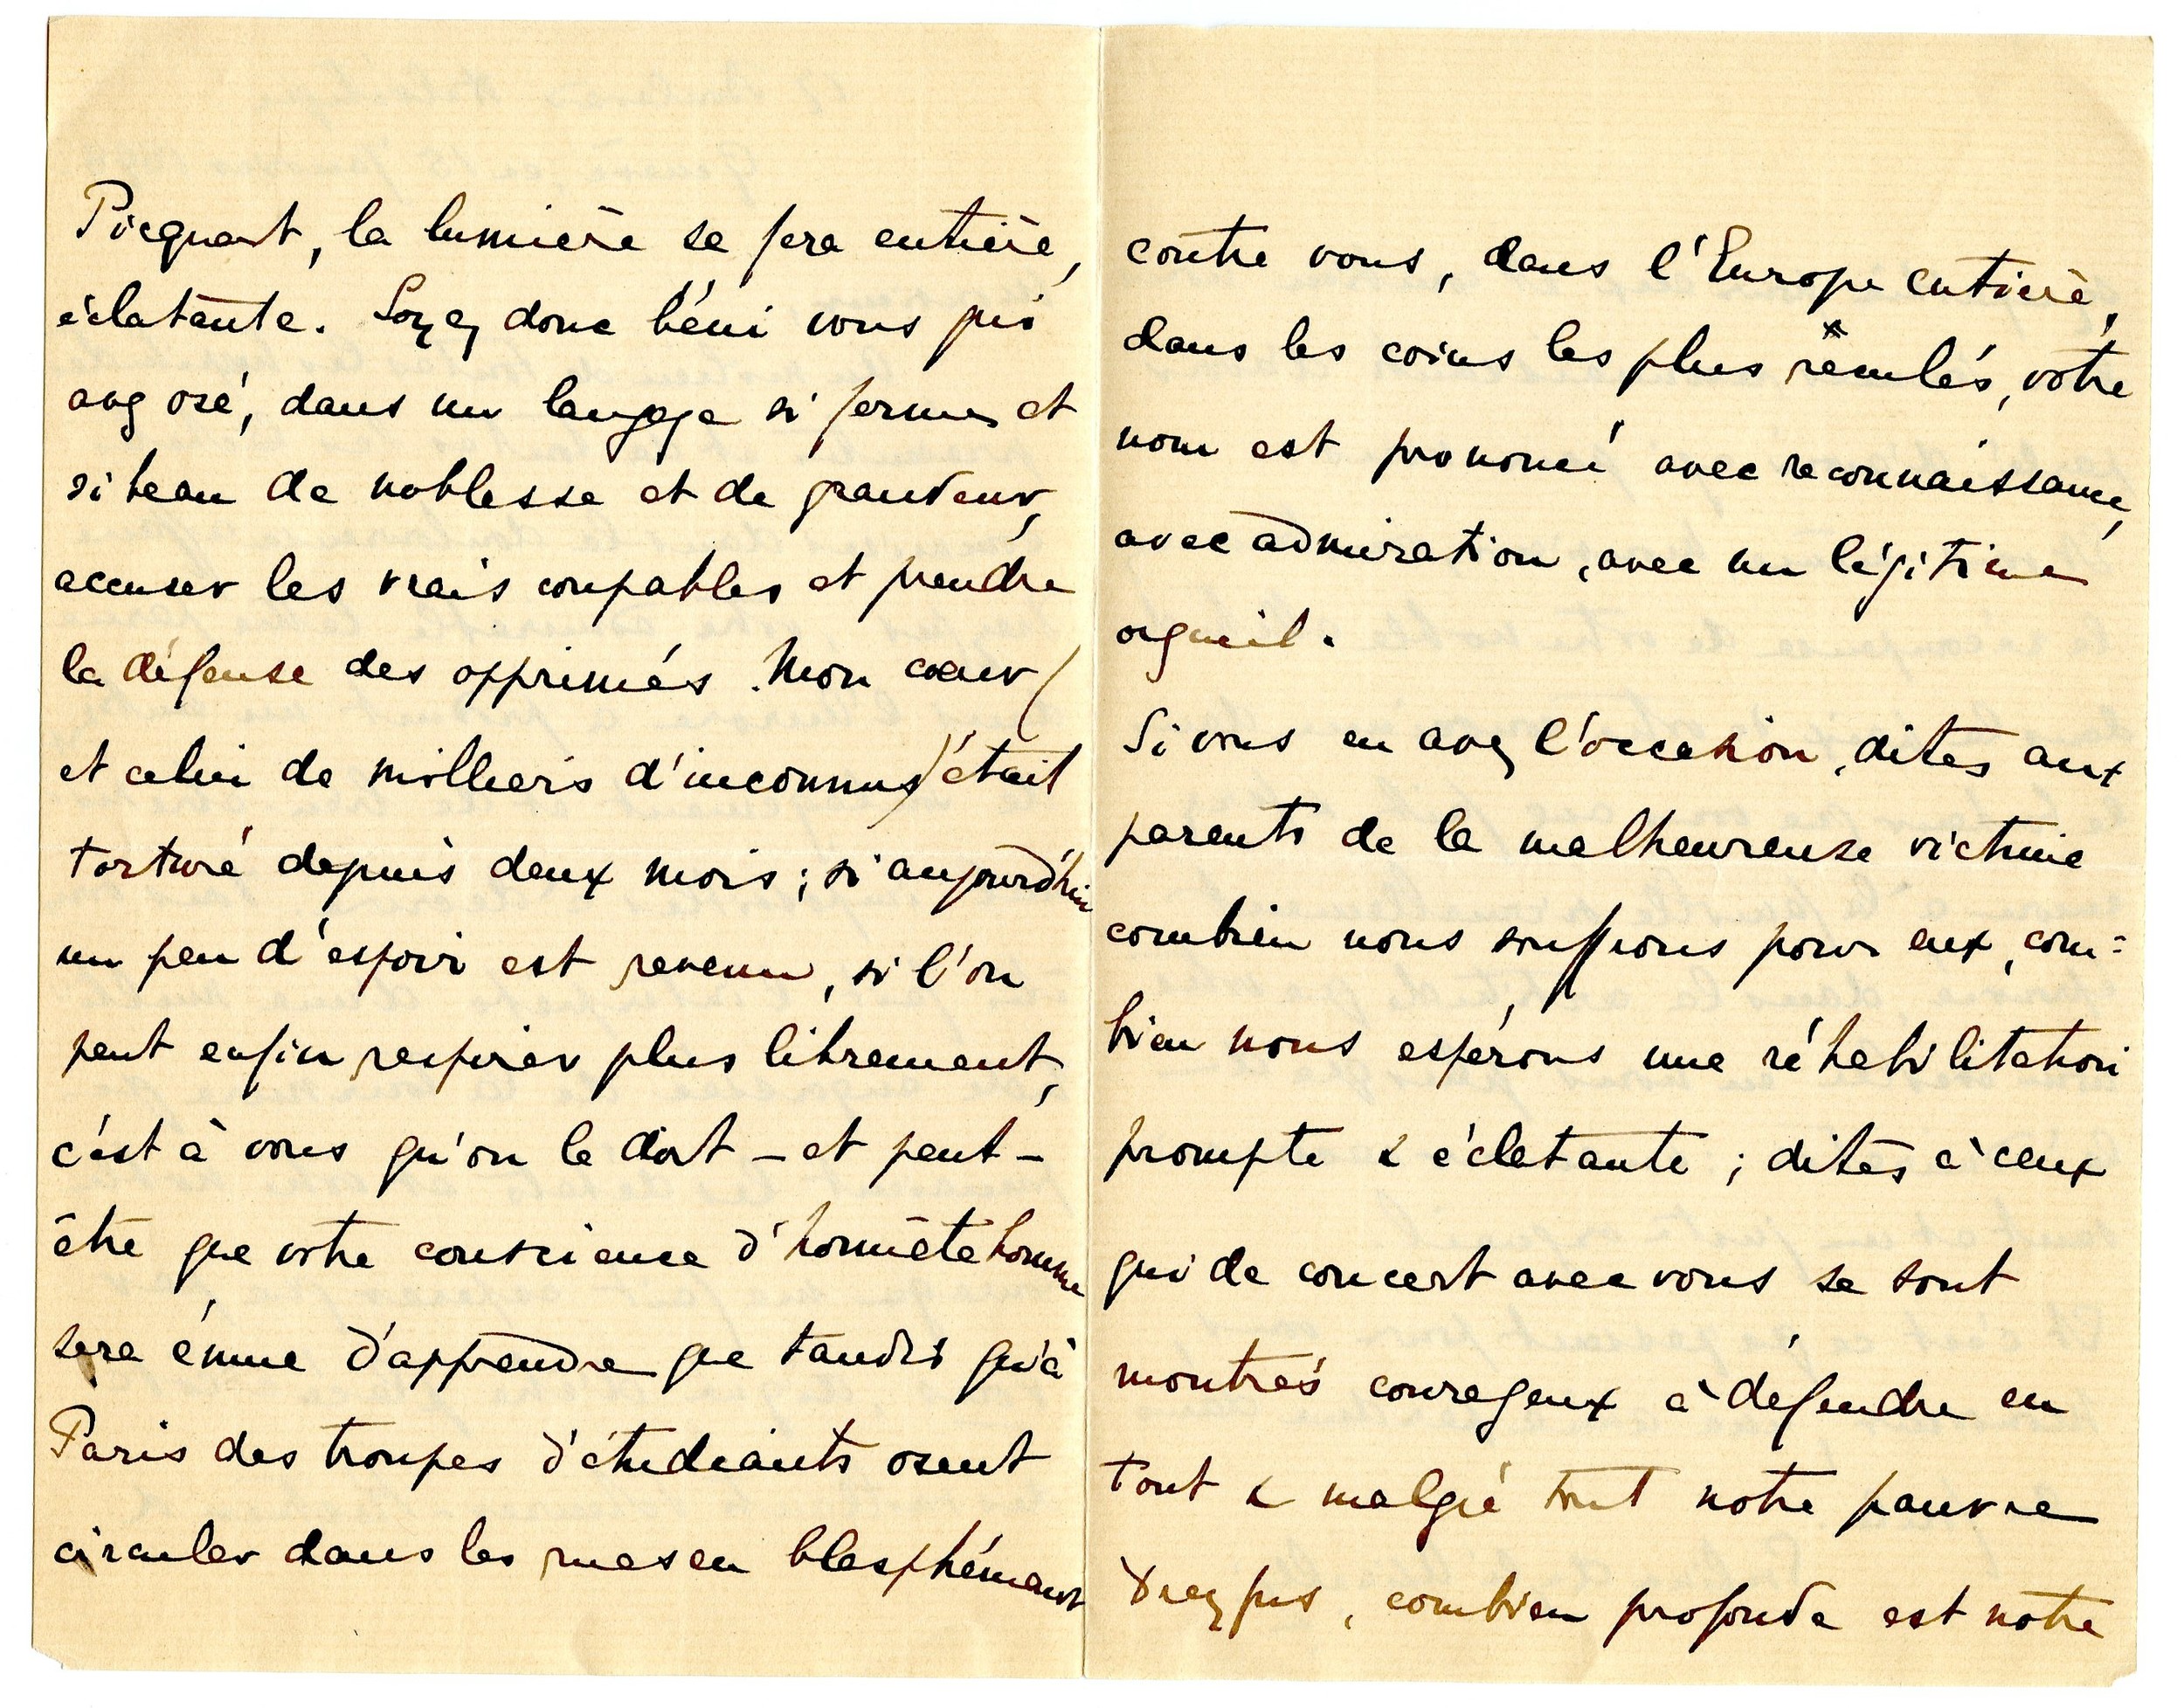 Picquart, la lumière se fera entière,
éclatante. Soyez donc béni vous qui
avez osé, dans un langage si ferme et
si beau de noblesse et de grandeur,
accuser les vrais coupables et prendre
la défense des opprimés. Mon cœur (
et celui de milliers d'inconnus) était
torturé depuis deux mois ; si aujourd'hui
un peu d'espoir est revenu, si l'on
peut enfin respirer plus librement,
c'est à vous qu'on le doit – et peut-
être que votre conscience d'honnête homme
sera émue d'apprendre que tandis qu'à
Paris des troupes d'étudiants osent
circuler dans les rues en blasphémant
contre vous, dans l'Europe entière,
dans les coins les plus reculés, votre
nom est prononcé avec reconnaissance,
avec admiration, avec un légitime
orgueil.
Si vous en avez l'occasion, dites aux
parents de la malheureuse victime
combien nous souffrons pour eux, com=
bien nous espérons une réhabilitation
prompte & éclatante ; dites à ceux
qui de concert avec vous se sont
montrés courageux à défendre en
tout & malgré tout notre pauvre
Dreyfus, combien profonde est notre